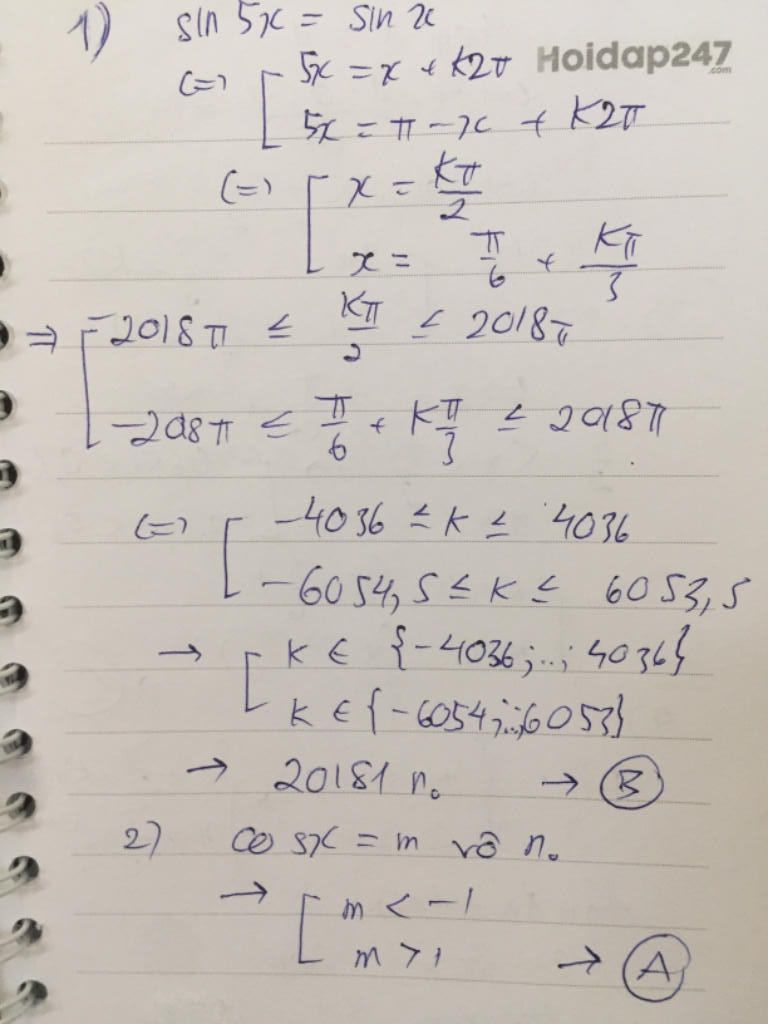 1) sin 5x = sin x
Hoidap247
.com
(=) [ 5x = x + K2π
5x = π - x + K2π
(=) [ x = Kπ/2
x = π/6 + Kπ/3
=> [ -2018π ≤ Kπ/2 ≤ 2018π
-208π ≤ π/6 + Kπ/3 ≤ 2018π
(=) [ -4036 ≤ K ≤ 4036
-6054,5 ≤ K ≤ 6053,5
→ [ K ∈ {-4036;..; 4036}
K ∈ {-6054;..;6053}
→ 20181 n. → B
2) cosx = m vô n.
→ [ m < -1
m > 1 → A